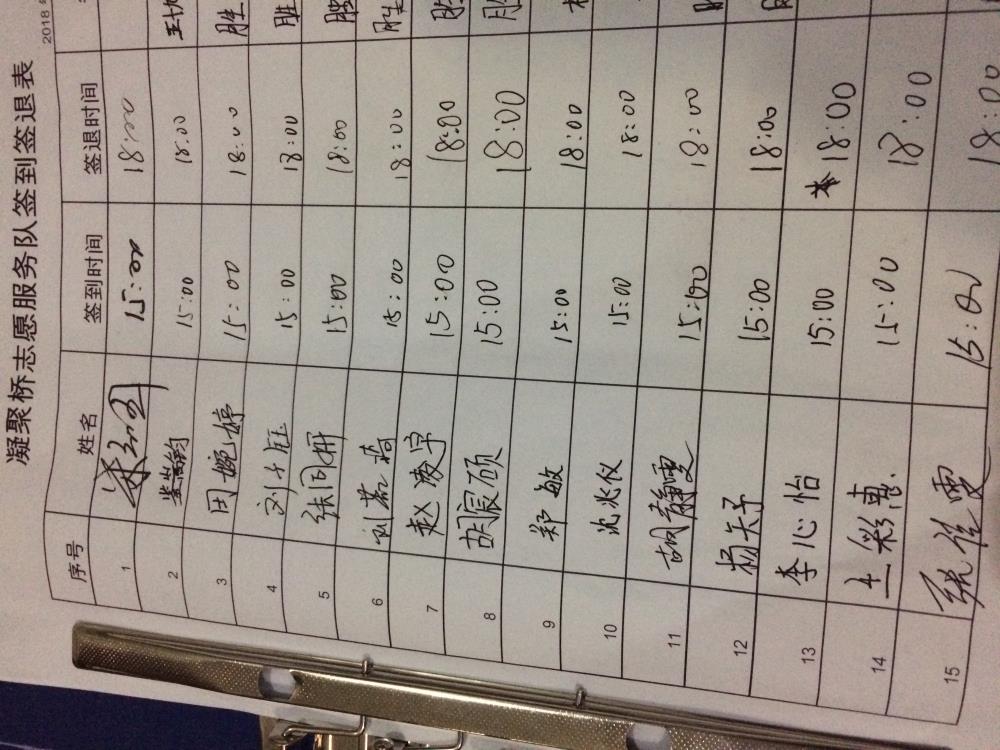 2018
凝聚桥志愿服务队签到签退表
序号 姓名 签到时间 签退时间
1 15:00 18:00
2 15:00 18:00
3 田婉婷 15:00 18:00
4 刘千钰 15:00 18:00
5 张同妍 15:00 18:00 胜
6 刘嘉琦 15:00 18:00 胜
7 赵凌宇 15:00 18:00
8 胡宸硕 15:00 18:00
9 郑敏 15:00 18:00
10 沈兆仪 15:00 18:00
11 胡静雯 15:00 18:00
12 杨天予 15:00 18:00
13 李心怡 15:00 18:00
14 王彩惠 15:00 18:00
15 张佳雯 15:00 18:00